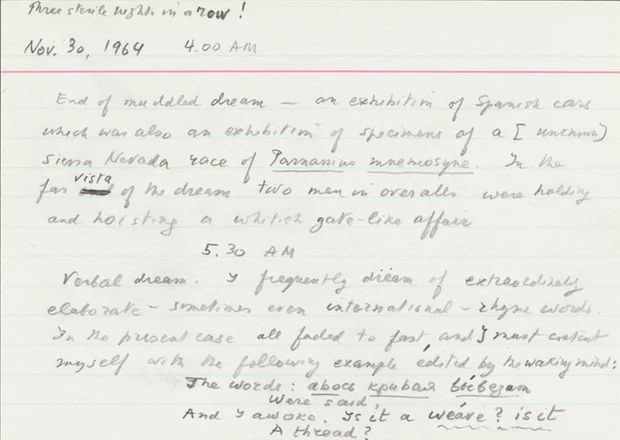 Three sterile nights in a row!
Nov. 30, 1964 4.00 AM
End of muddled dream – an exhibition of Spanish cars
which was also an exhibition of specimens of a [unknown]
Sierra Nevada race of Parnassius mnemosyne. In the
far vista of the dream two men in overalls were holding
and hoisting a whitish gate-like affair
5.30 AM
Verbal dream. I frequently dream of extraordinarily
elaborate – sometimes even international – rhyme words.
In the present case all faded to fast, and I must content
myself with the following example edited by the waking mind:
The words: авось кривая вывезет
Were said,
And I awoke. Is it a weave? is it
A thread?